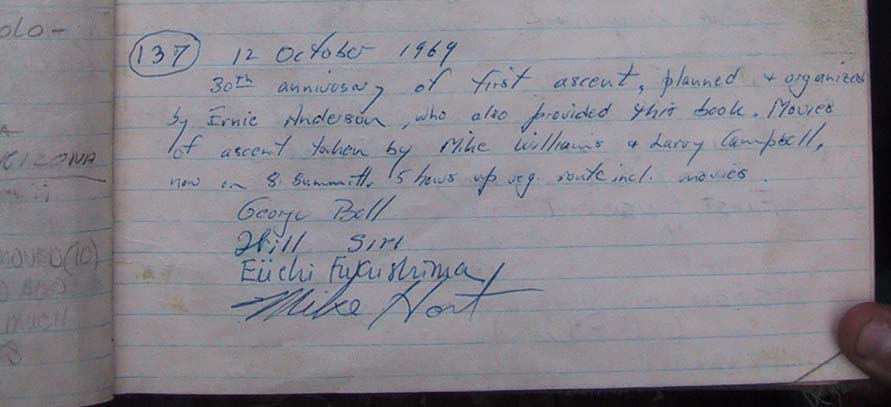 137 12 October 1969
30th anniversary of first ascent, planned + organized
by Ernie Anderson, who also provided this book. Movies
of ascent taken by Mike Williams + Larry Campbell,
now on S. Summit. 5 hours up reg. route incl. movies.
George Bell
Will Siri
Eiichi Fukushima
Mike Hart
OLO-
MOVED (10)
MUCH